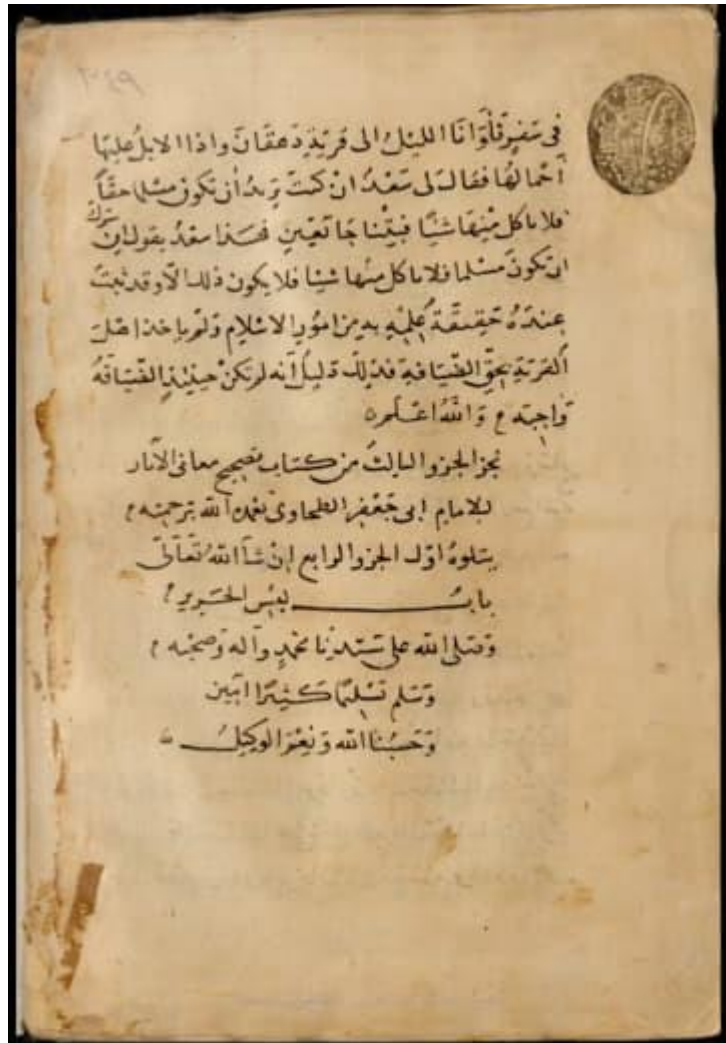 ٢٤٩
في سفر فآوانا الليل الى قرية دهقان واذا الابل عليها
أحمالها فقال لي سعد ان كنت تريد أن تكون مسلما حقاً
فلا تاكل منها شيئا فبتنا جائعين فهذا سعد يقول ان سرك
ان تكون مسلما فلا تاكل منها شيئا فلا يكون ذلك الا وقد ثبت
عنده حقيقة علمه به من امور الاسلام ولم ياخذ اهل
القرية بحق الضيافة فذلك دليل أنه لم تكن حينئذ الضيافة
واجبه والله اعلم
نجز الجزو الثالث من كتاب تصحيح معاني الآثار
للامام ابي جعفر الطحاوي تغمده الله برحمته
يتلوه اول الجزو الرابع إن شا الله تعالى
باب لبس الحرير
وصلى الله على سيدنا محمد وآله وصحبه
وسلم تسليما كثيرا امين
وحسبنا الله ونعم الوكيل